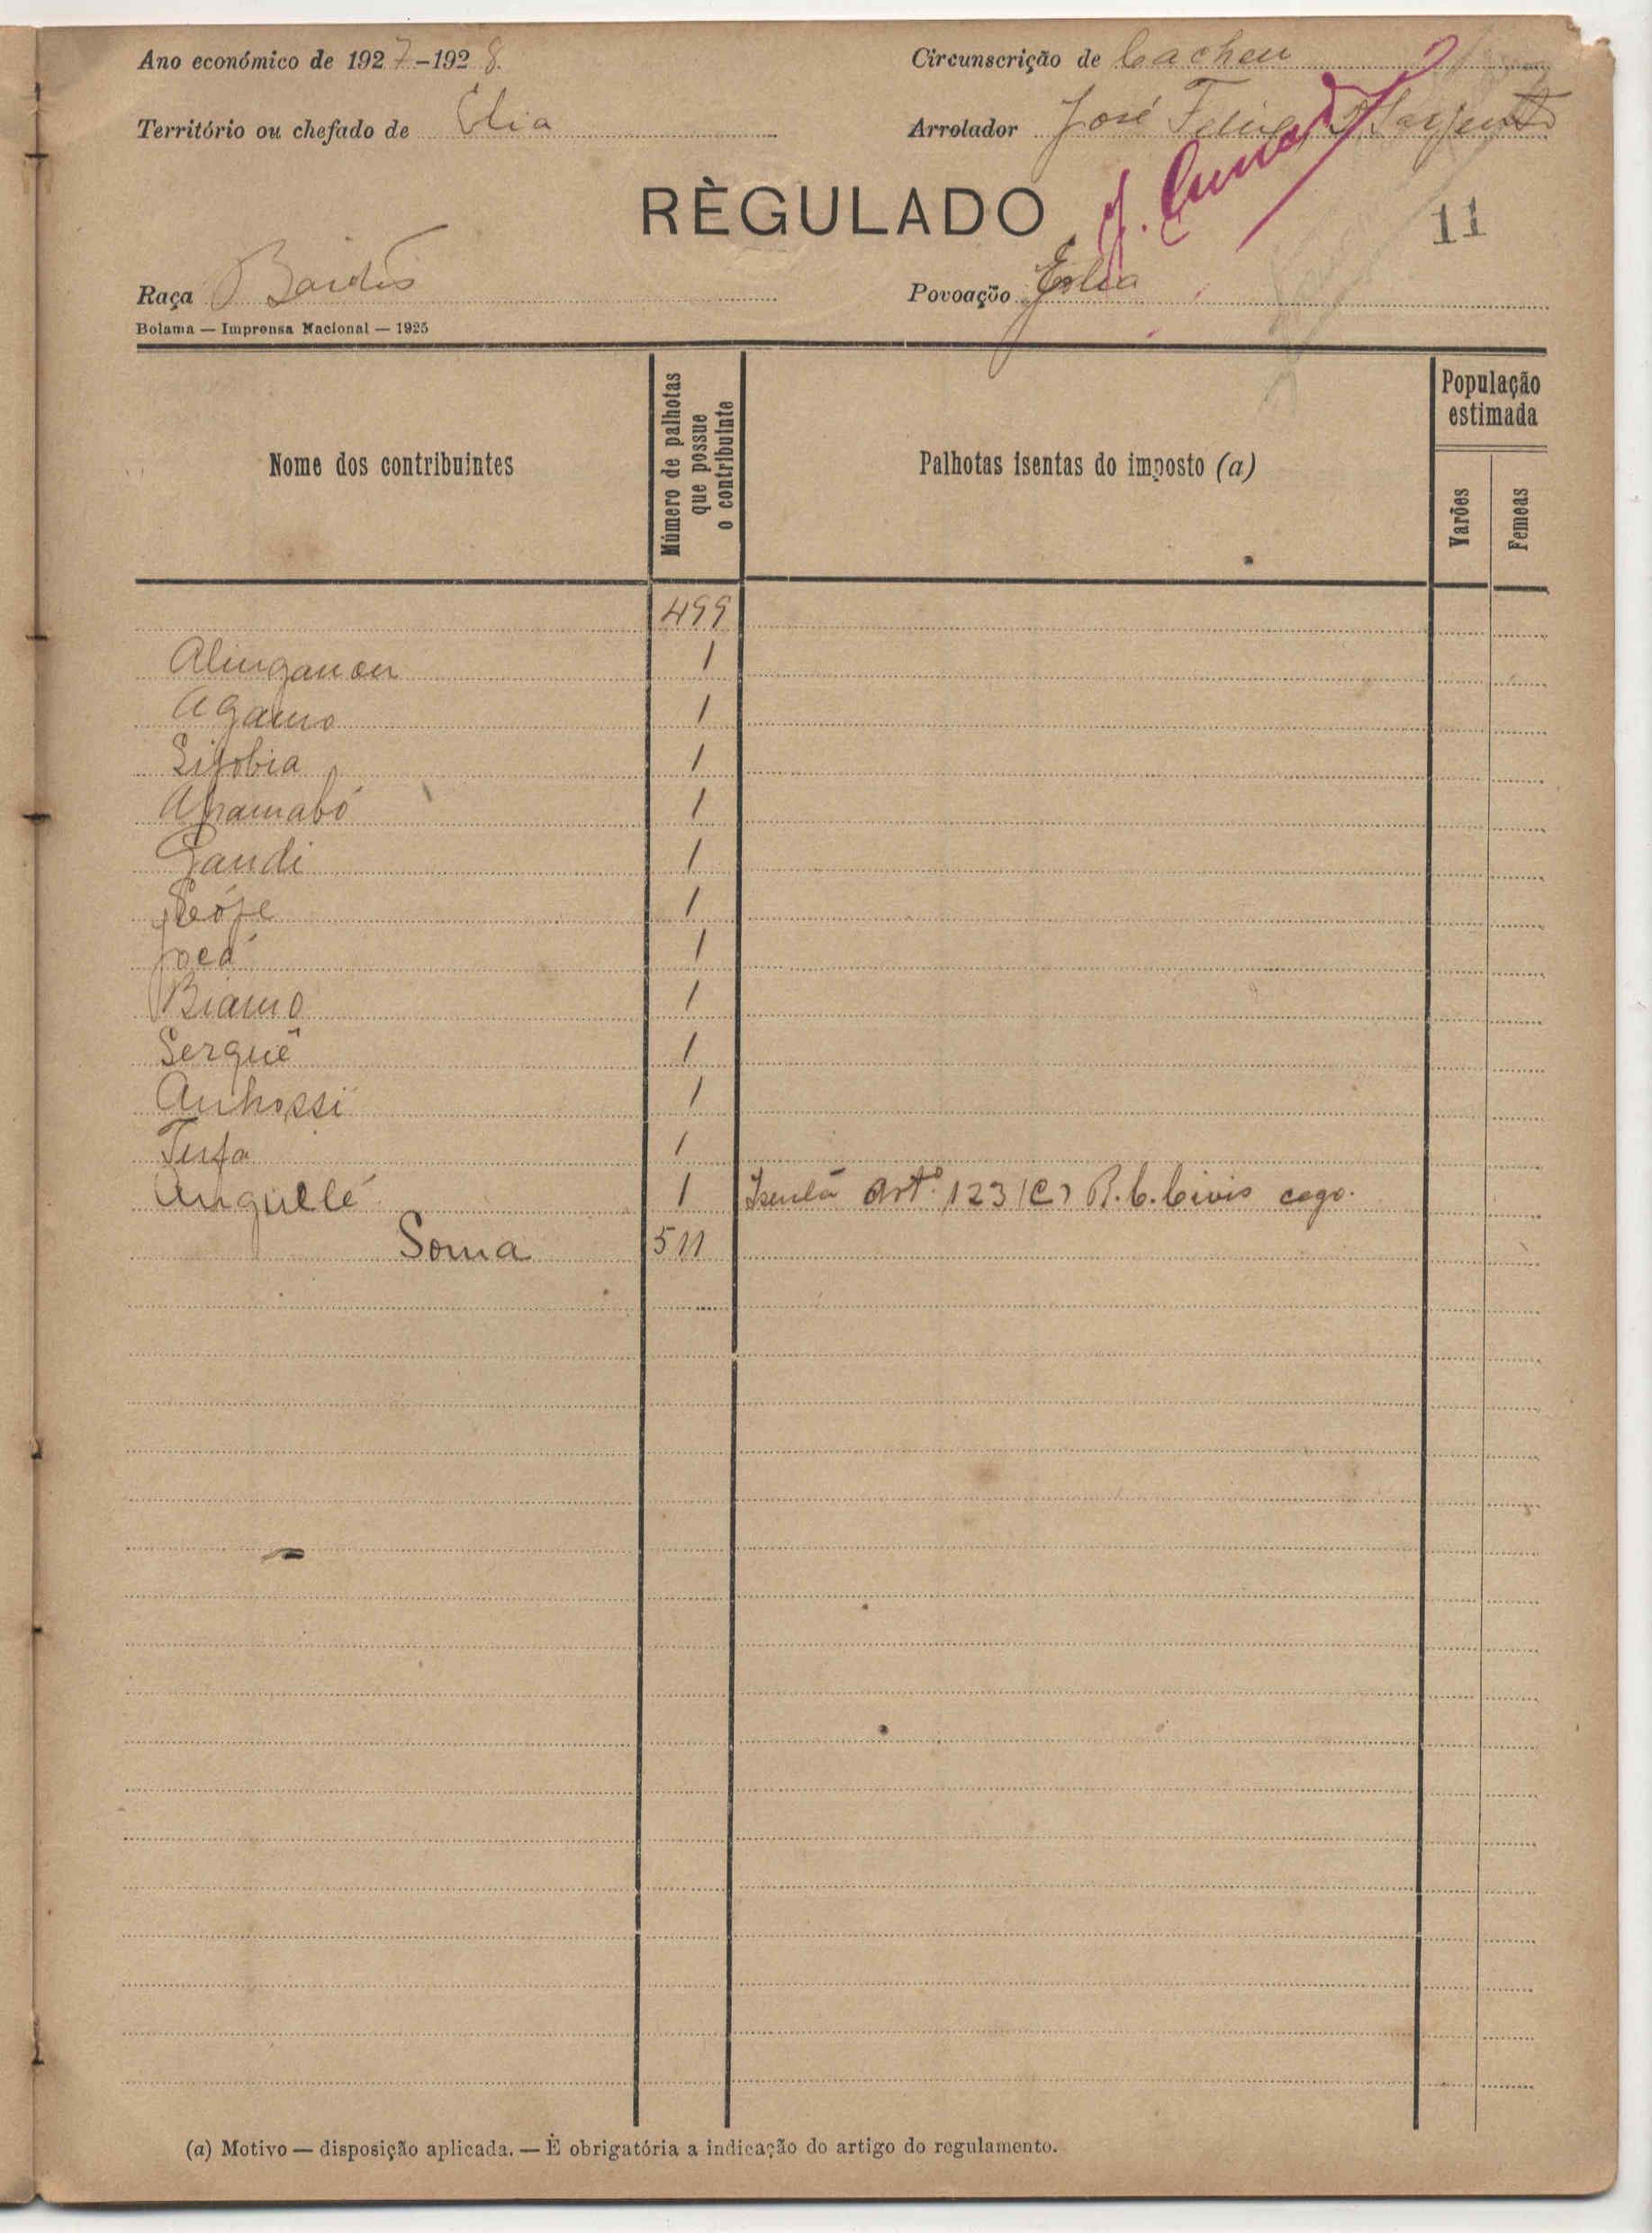 Ano económico de 1927-1928.
Circunscrição de Cacheu
Território ou chefado de Elia
Arrolador José
RÈGULADO
11
Raça
Povoação Elia
Bolama — Imprensa Nacional — 1925
Nome dos contribuintes
Número de palhotas que possue o contribuinte
Palhotas isentas do imposto (a)
População estimada
Varões
Femeas
499
1
Agamo 1
Sifobia 1
1
Gandi 1
1
1
Biamo 1
Serguê 1
Anhossi 1
1
Anguelé 1 Art.º 123 (C) R. C. Civis cego.
Soma 511
(a) Motivo — disposição aplicada. — È obrigatória a indicação do artigo do regulamento.